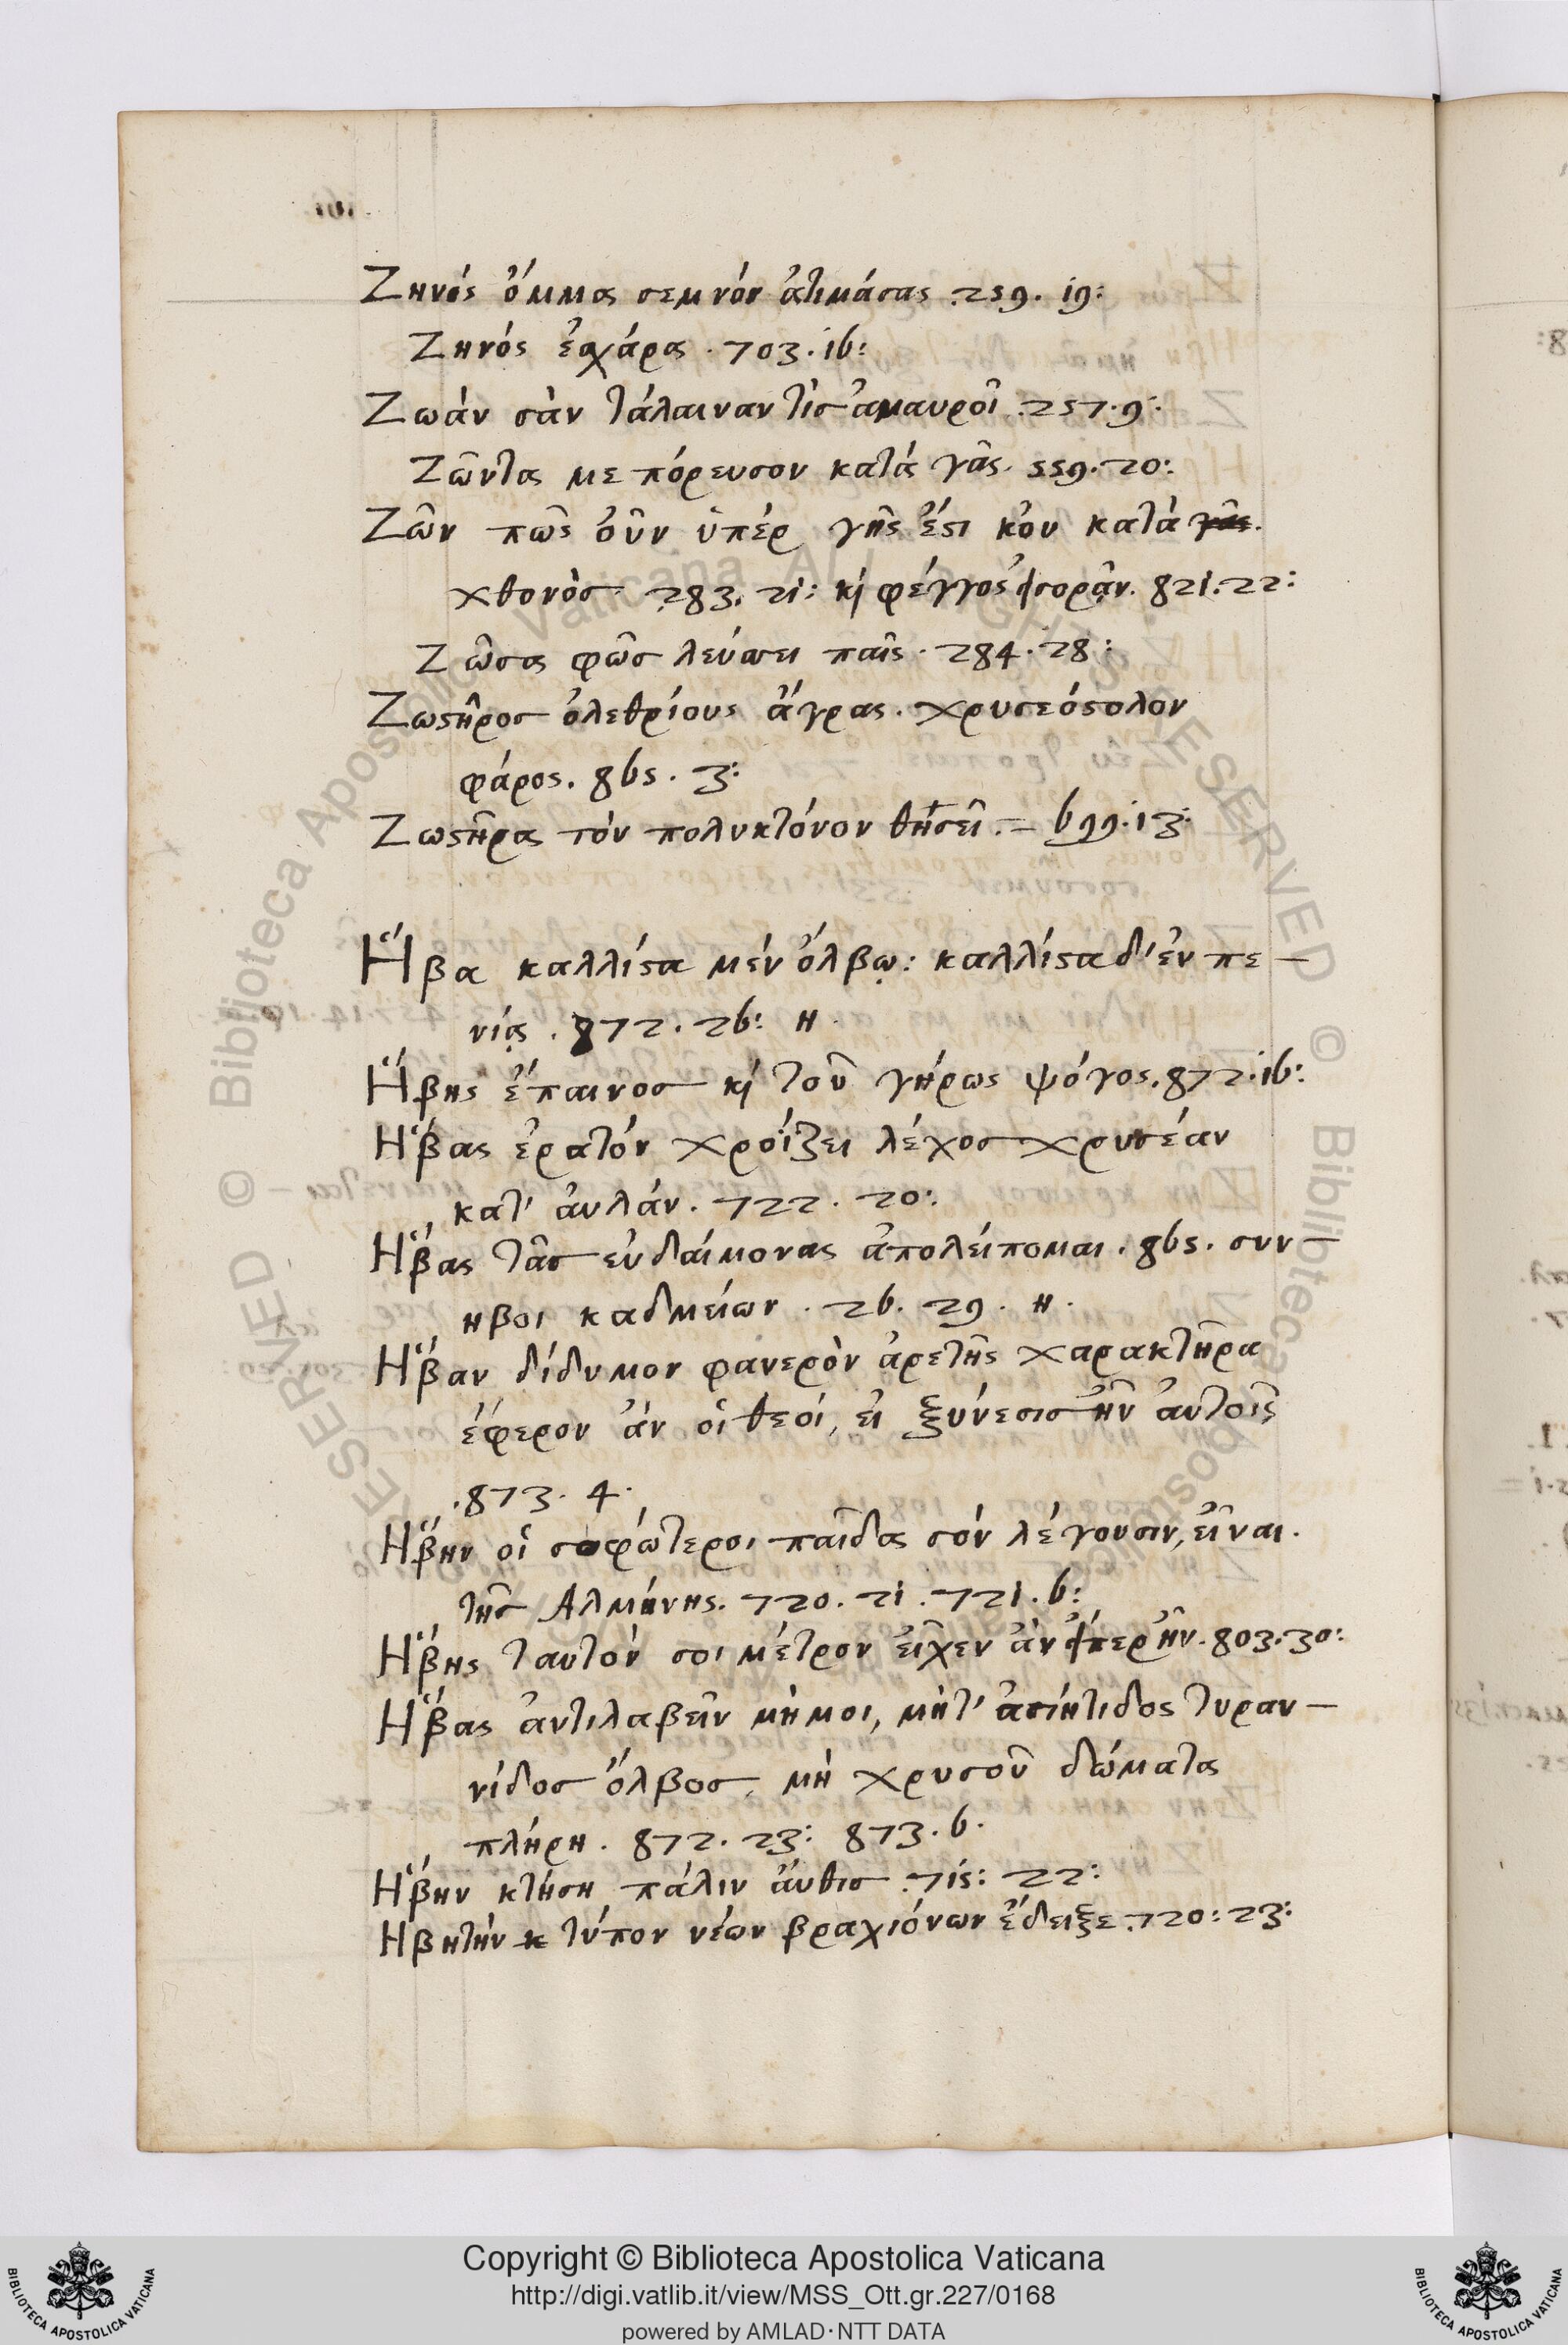 Ζηνός ὄμμα σεμνόν ἀτιμάσας .259. 19:
Ζηνός ἐσχάρα . 703. 16:
Ζωάν σὰν τάλαιναν τίς ἀμαυροῖ .257.9:
Ζῶντα με πόρευσον κατά γᾶς. 559. 20:
Ζῶν πῶς οὖν ὑπέρ γῆς ἔϛι κ'ου κατὰ γᾶς.
χθονὸς 283. 21: κὶ φέγγος εἰσορᾷν. 821. 22:
Ζῶσα φῶς λεύσσει παῖς . 284. 28:
Ζωϛῆρος ὀλεθρίους ἄγρας. χρυσεόϛολον
φάρος. 865. 3:
Ζωϛῆρα τόν πολυκτόνον θησεῖ. = 699.13:
Ἥβα καλλίϛα μέν ὄλβῳ: καλλίϛα δ' ἐν πε–
νίᾳ . 872. 26: η.
Ἥβης ἔπαινος κὶ τοῦ γήρως ψόγος. 872. 16:
Ἥβας ἐρατόν χροΐζει λέχος χρυσέαν
κατ' ἀυλάν. 722. 20:
Ἥβας τᾶς ευδαίμονας ἀπολείπομαι. 865. συν–
ηβοι καδμείων . 26. 29. η.
Ἥβαν δίδυμον φανερὸν ἀρετῆς χαρακτῆρα
ἔφερον ἄν οἱ θεοί, εἰ ξύνεσις ἦν ἀυτοῖς
.873. 4.
Ἥβην οἱ σοφώτεροι παῖδα σόν λέγουσιν, εἶναι.
τῆς Αλμήνης. 720. 21. 721. 6:
Ἥβης ταυτόν σοι μέτρον εἶχεν ἄν εἴπερ ἦν. 803. 30:
Ἥβας ἀντιλαβεῖν μὴ μοι, μὴτ' ἀσιήτιδος τυραν–
νίδος ὄλβος, μὴ χρυσοῦ δώματα
πλήρη. 872. 23: 873. 6.
Ἥβην κτήση πάλιν ἄυθις .715: 22:
Ηβητήν τύπον νέων βραχιόνων ἔδειξε. 720: 23:
Copyright © Biblioteca Apostolica Vaticana
http://digi.vatlib.it/view/MSS_Ott.gr.227/0168
powered by AMLAD·NTT DATA